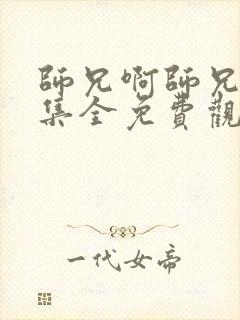 師兄啊師兄
集全免費觀
一代女帝